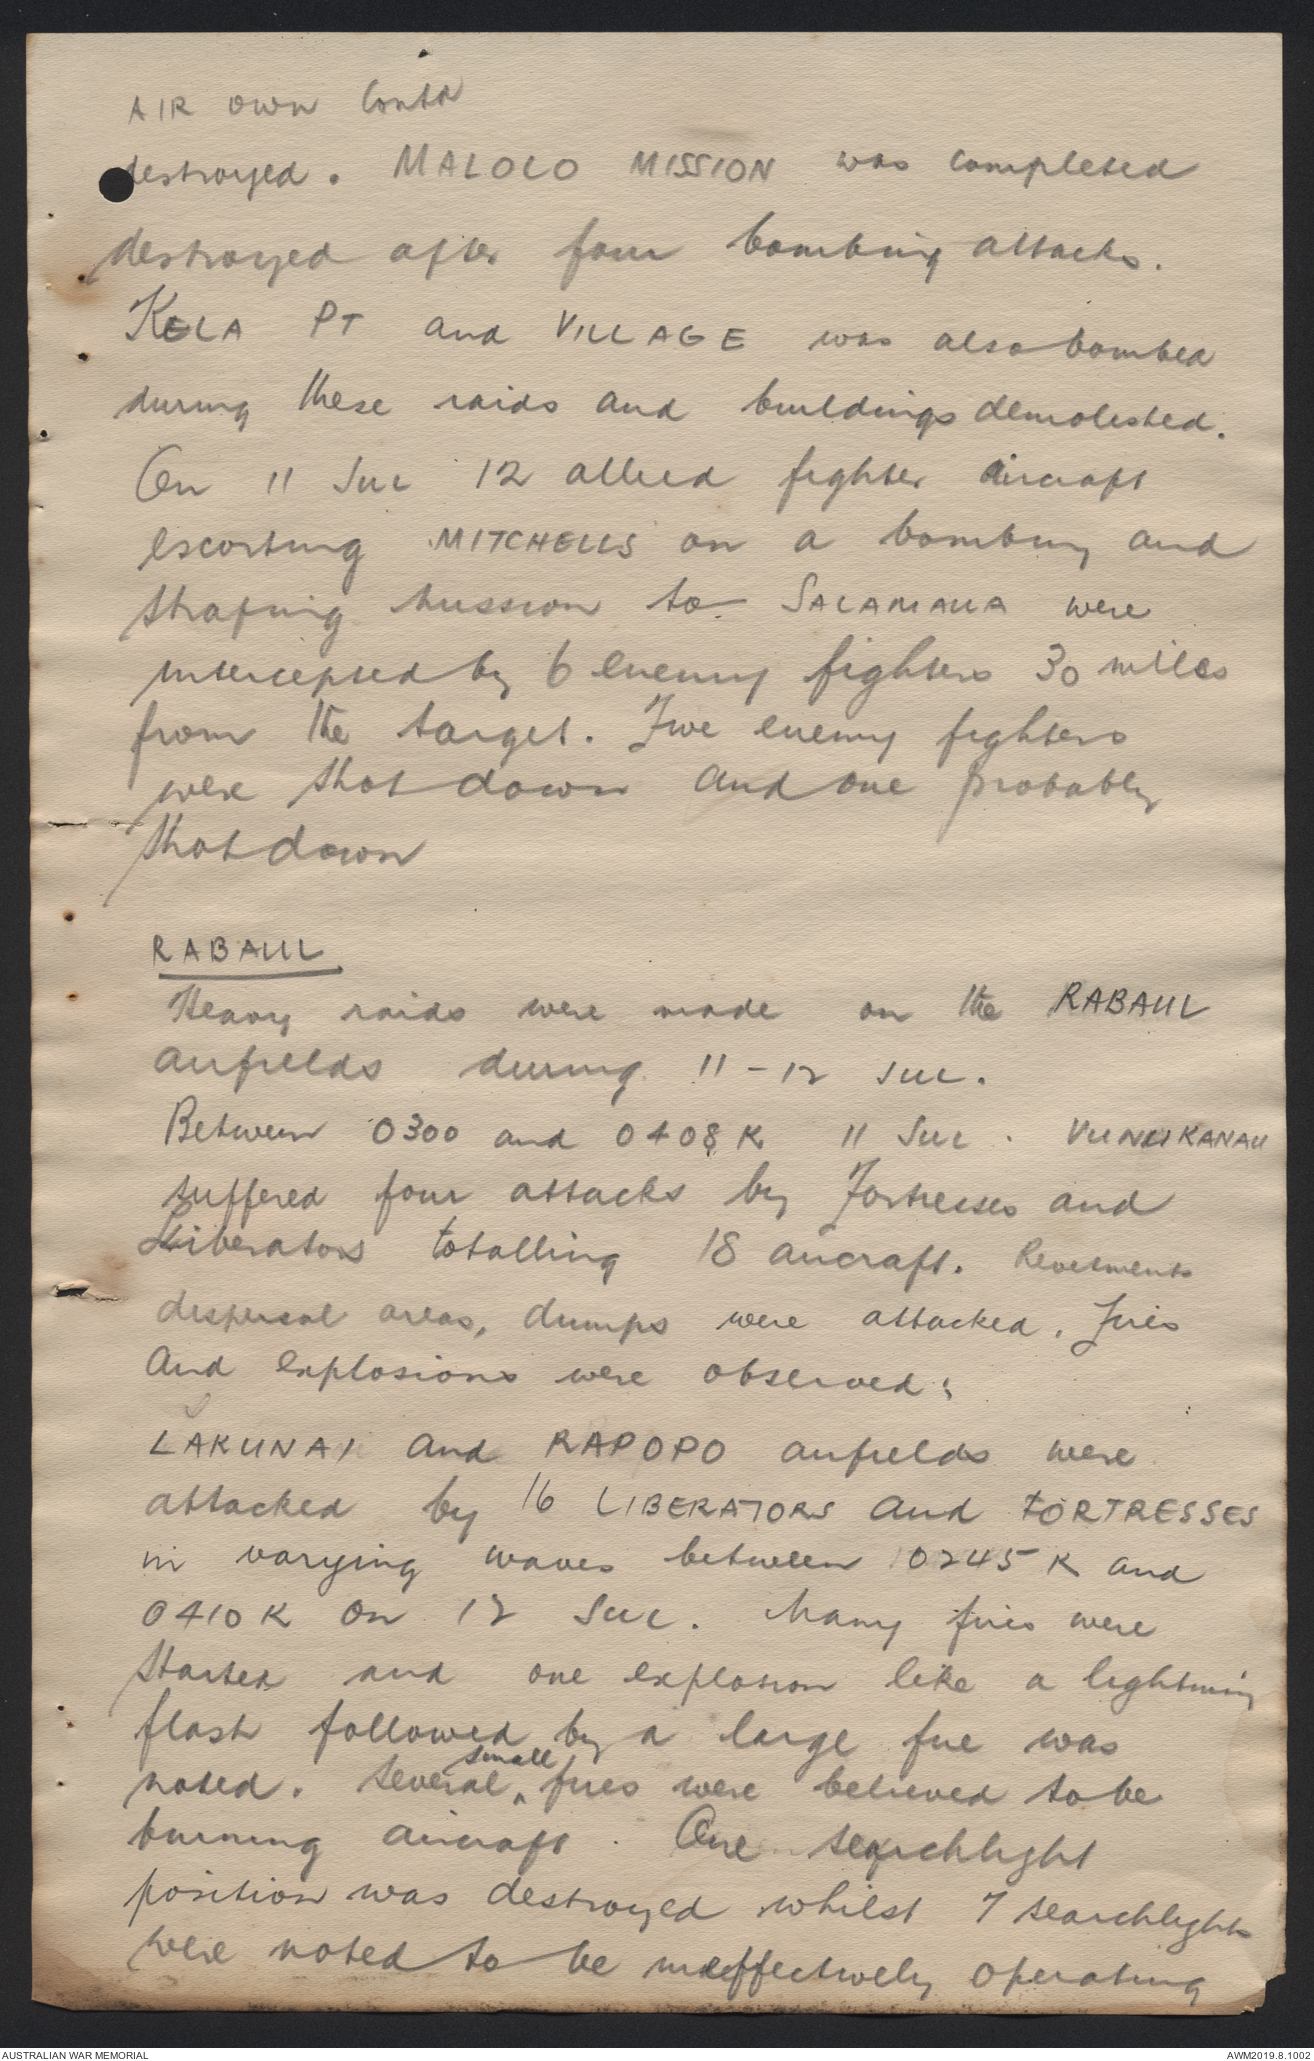 AIR OWN Contd
destroyed. MALOLO MISSION was completed
destroyed after four bombing attacks.
KELA PT and VILLAGE was also bombed
during these raids and buildings demolished.
On 11 Jul 12 allied fighter aircraft
escorting MITCHELLS on a bombing and
strafing mission to SALAMAUA were
intercepted by 6 enemy fighters 30 miles
from the target. Five enemy fighters
were shot down and one probably
shot down
RABAUL
Heavy raids were made on the RABAUL
airfields during 11-12 Jul.
Between 0300 and 0408K 11 Jul. VUNUKANAU
suffered four attacks by Fortresses and
Liberators totalling 18 aircraft. Revetments
dispersal areas, dumps were attacked. Fires
and explosions were observed;
LAKUNAI and RAPOPO airfields were
attacked by 16 LIBERATORS and FORTRESSES
in varying waves between 0245K and
0410K on 12 Jul. Many fires were
started and one explosion like a lightning
flash followed by a large fire was
noted. Several small fires were believed to be
burning aircraft. One searchlight
position was destroyed whilst 7 searchlights
were noted to be ineffectively operating
AUSTRALIAN WAR MEMORIAL
AWM2019.8.1002